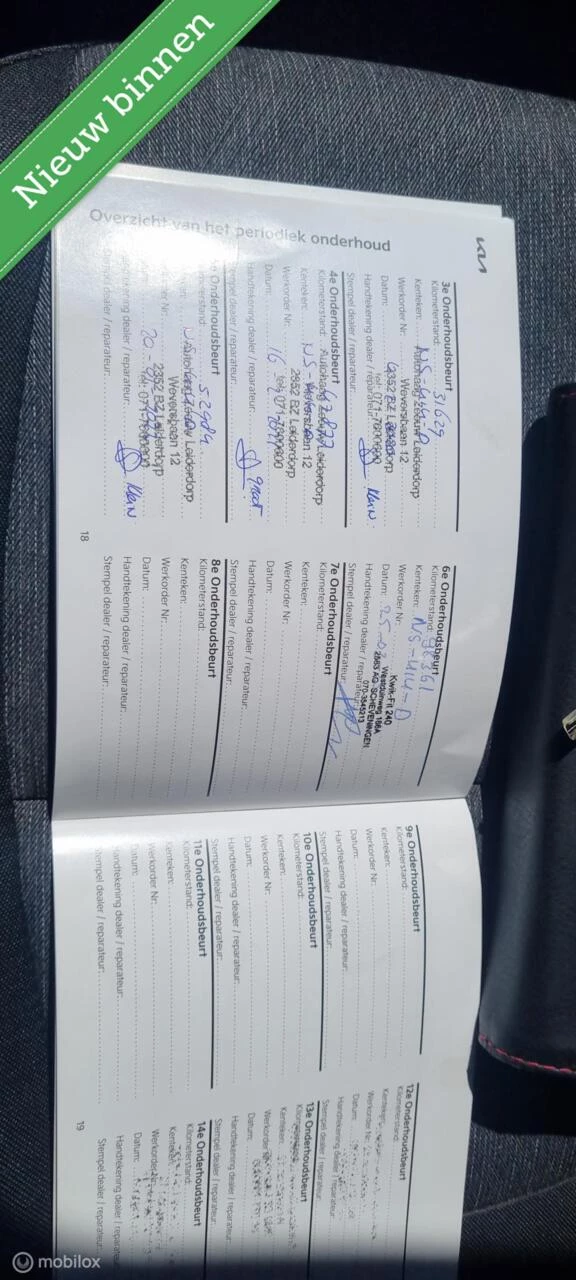 Nieuw binnen
KIA
Overzicht van het periodiek onderhoud
3e Onderhoudsbeurt
Kilometerstand: 31629
Kenteken: NS-414-D
Autohaag Zeeuw Leiderdorp
Werkorder Nr:
Weversbaan 12
Datum:
2352 BZ Leiderdorp
tel: 071-7600600
Handtekening dealer / reparateur:
Stempel dealer / reparateur:
4e Onderhoudsbeurt
Kilometerstand:
Autohaag Zeeuw Leiderdorp
Kenteken:
Weversbaan 12
Werkorder Nr:
2352 BZ Leiderdorp
Datum: 16
tel: 071-7600600
Handtekening dealer / reparateur:
Stempel dealer / reparateur:
5e Onderhoudsbeurt
Kilometerstand: 52484
Kenteken:
Autohaag Zeeuw Leiderdorp
Weversbaan 12
Werkorder Nr:
2352 BZ Leiderdorp
Datum: 20
tel: 071-7600600
Handtekening dealer / reparateur:
Stempel dealer / reparateur:
18
6e Onderhoudsbeurt
Kilometerstand: 98361
Kenteken: NS-414-D
Werkorder Nr:
Kwik-Fit 240
Datum: 25-03
Westduinweg 166A
2583 AG SCHEVENINGEN
Handtekening dealer / reparateur:
070-3545213
Stempel dealer / reparateur:
7e Onderhoudsbeurt
Kilometerstand:
Kenteken:
Werkorder Nr:
Datum:
Handtekening dealer / reparateur:
Stempel dealer / reparateur:
8e Onderhoudsbeurt
Kilometerstand:
Kenteken:
Werkorder Nr:
Datum:
Handtekening dealer / reparateur:
Stempel dealer / reparateur:
9e Onderhoudsbeurt
Kilometerstand:
Kenteken:
Werkorder Nr:
Datum:
Handtekening dealer / reparateur:
Stempel dealer / reparateur:
10e Onderhoudsbeurt
Kilometerstand:
Kenteken:
Werkorder Nr:
Datum:
Handtekening dealer / reparateur:
Stempel dealer / reparateur:
11e Onderhoudsbeurt
Kilometerstand:
Kenteken:
Werkorder Nr:
Datum:
Handtekening dealer / reparateur:
Stempel dealer / reparateur:
12e Onderhoudsbeurt
Kilometerstand:
Kenteken:
Werkorder Nr:
Datum:
Handtekening dealer / reparateur:
Stempel dealer / reparateur:
13e Onderhoudsbeurt
Kenteken:
Werkorder Nr:
Datum:
Handtekening dealer / reparateur:
Stempel dealer / reparateur:
14e Onderhoudsbeurt
Kilometerstand:
Kenteken:
Werkorder Nr:
Datum:
Handtekening dealer / reparateur:
Stempel dealer / reparateur:
19
mobilox